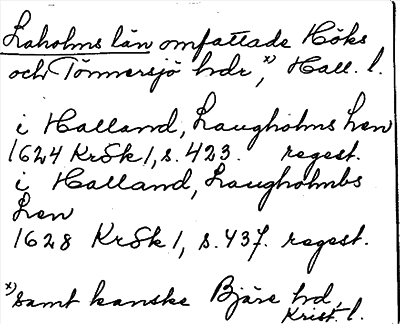 Laholms län omfattade Höks
och Tönnersjö hdr,ˣ⁾ Hall. l.
i Halland, Laugholms Len
1624 KrSk 1, s. 423. regest.
i Halland, Laugholmbs
Len
1628 KrSk 1, s. 437. regest.
ˣ⁾samt kanske Bjäre hd,
Krist. l.